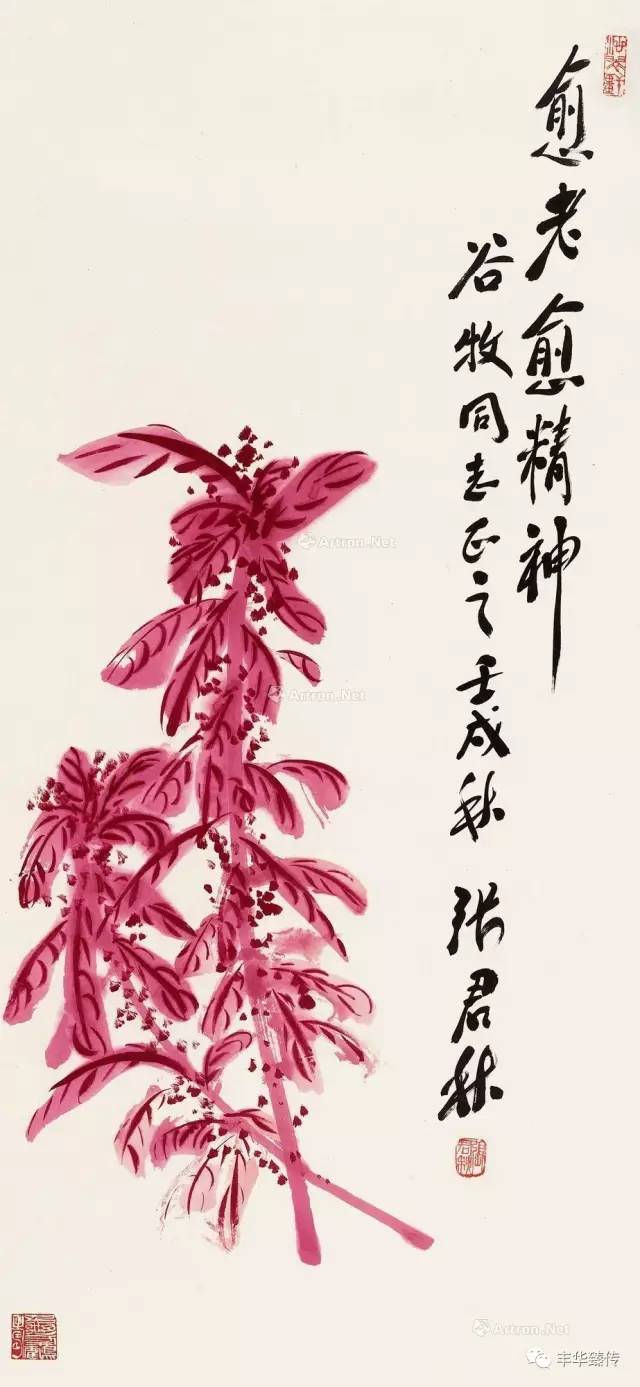 愈老愈精神
谷牧同志正之 壬戌秋 张君秋
张君秋
Artron.Net
Artron.Net
Artron.Net
丰华臻传